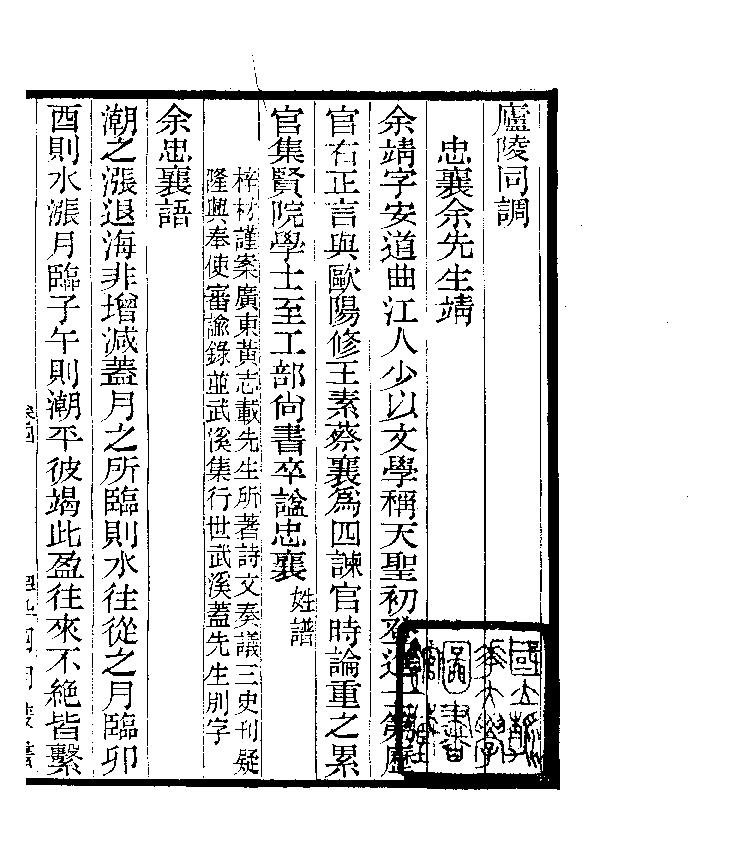 廬陵同調
忠襄余先生靖
余靖字安道曲江人少以文學稱天聖初登進士第歷
官右正言與歐陽修王素蔡襄為四諫官時論重之累
官集賢院學士至工部尚書卒諡忠襄姓譜
梓材謹案廣東黃志載先生所著詩文奏議三史刊疑
隆興奉使審諭錄並武溪集行世武溪蓋先生別字
余忠襄語
潮之漲退海非增減蓋月之所臨則水往從之月臨卯
酉則水漲月臨子午則潮平彼竭此盈往來不絕皆繫